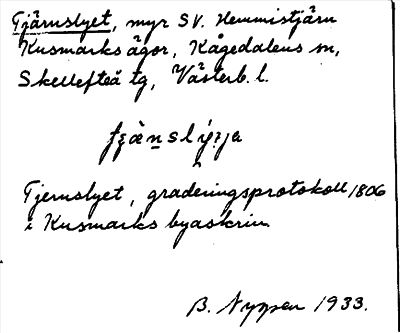 Tjärnslyet, myr SV. Hemmistjärn
Kusmarks ägor, Kågedalens sn,
Skellefteå tg, Västerb. l.
Tjernslyet, graderingsprotokoll 1806
i Kusmarks byaskrin
B. Nygren 1933.